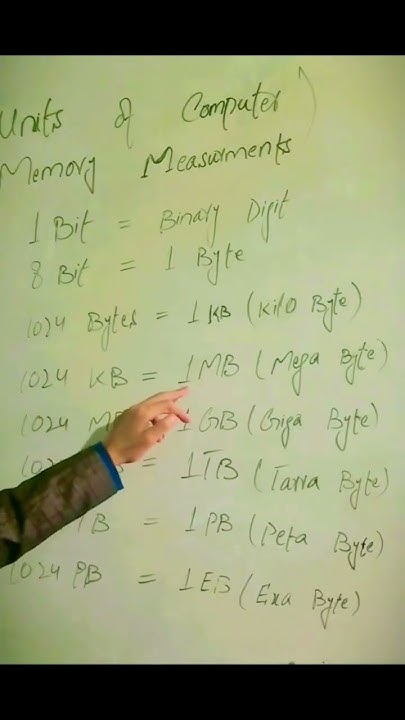 Units of Computer )
Memory Measurments
1 Bit = Binary Digit
8 Bit = 1 Byte
1024 Bytes = 1 KB (Kilo Byte)
1024 KB = 1 MB (Mega Byte)
1024 M = 1 GB (Giga Byte)
102 = 1 TB (Tarra Byte)
TB = 1 PB (Peta Byte)
1024 PB = 1 EB (Exa Byte)